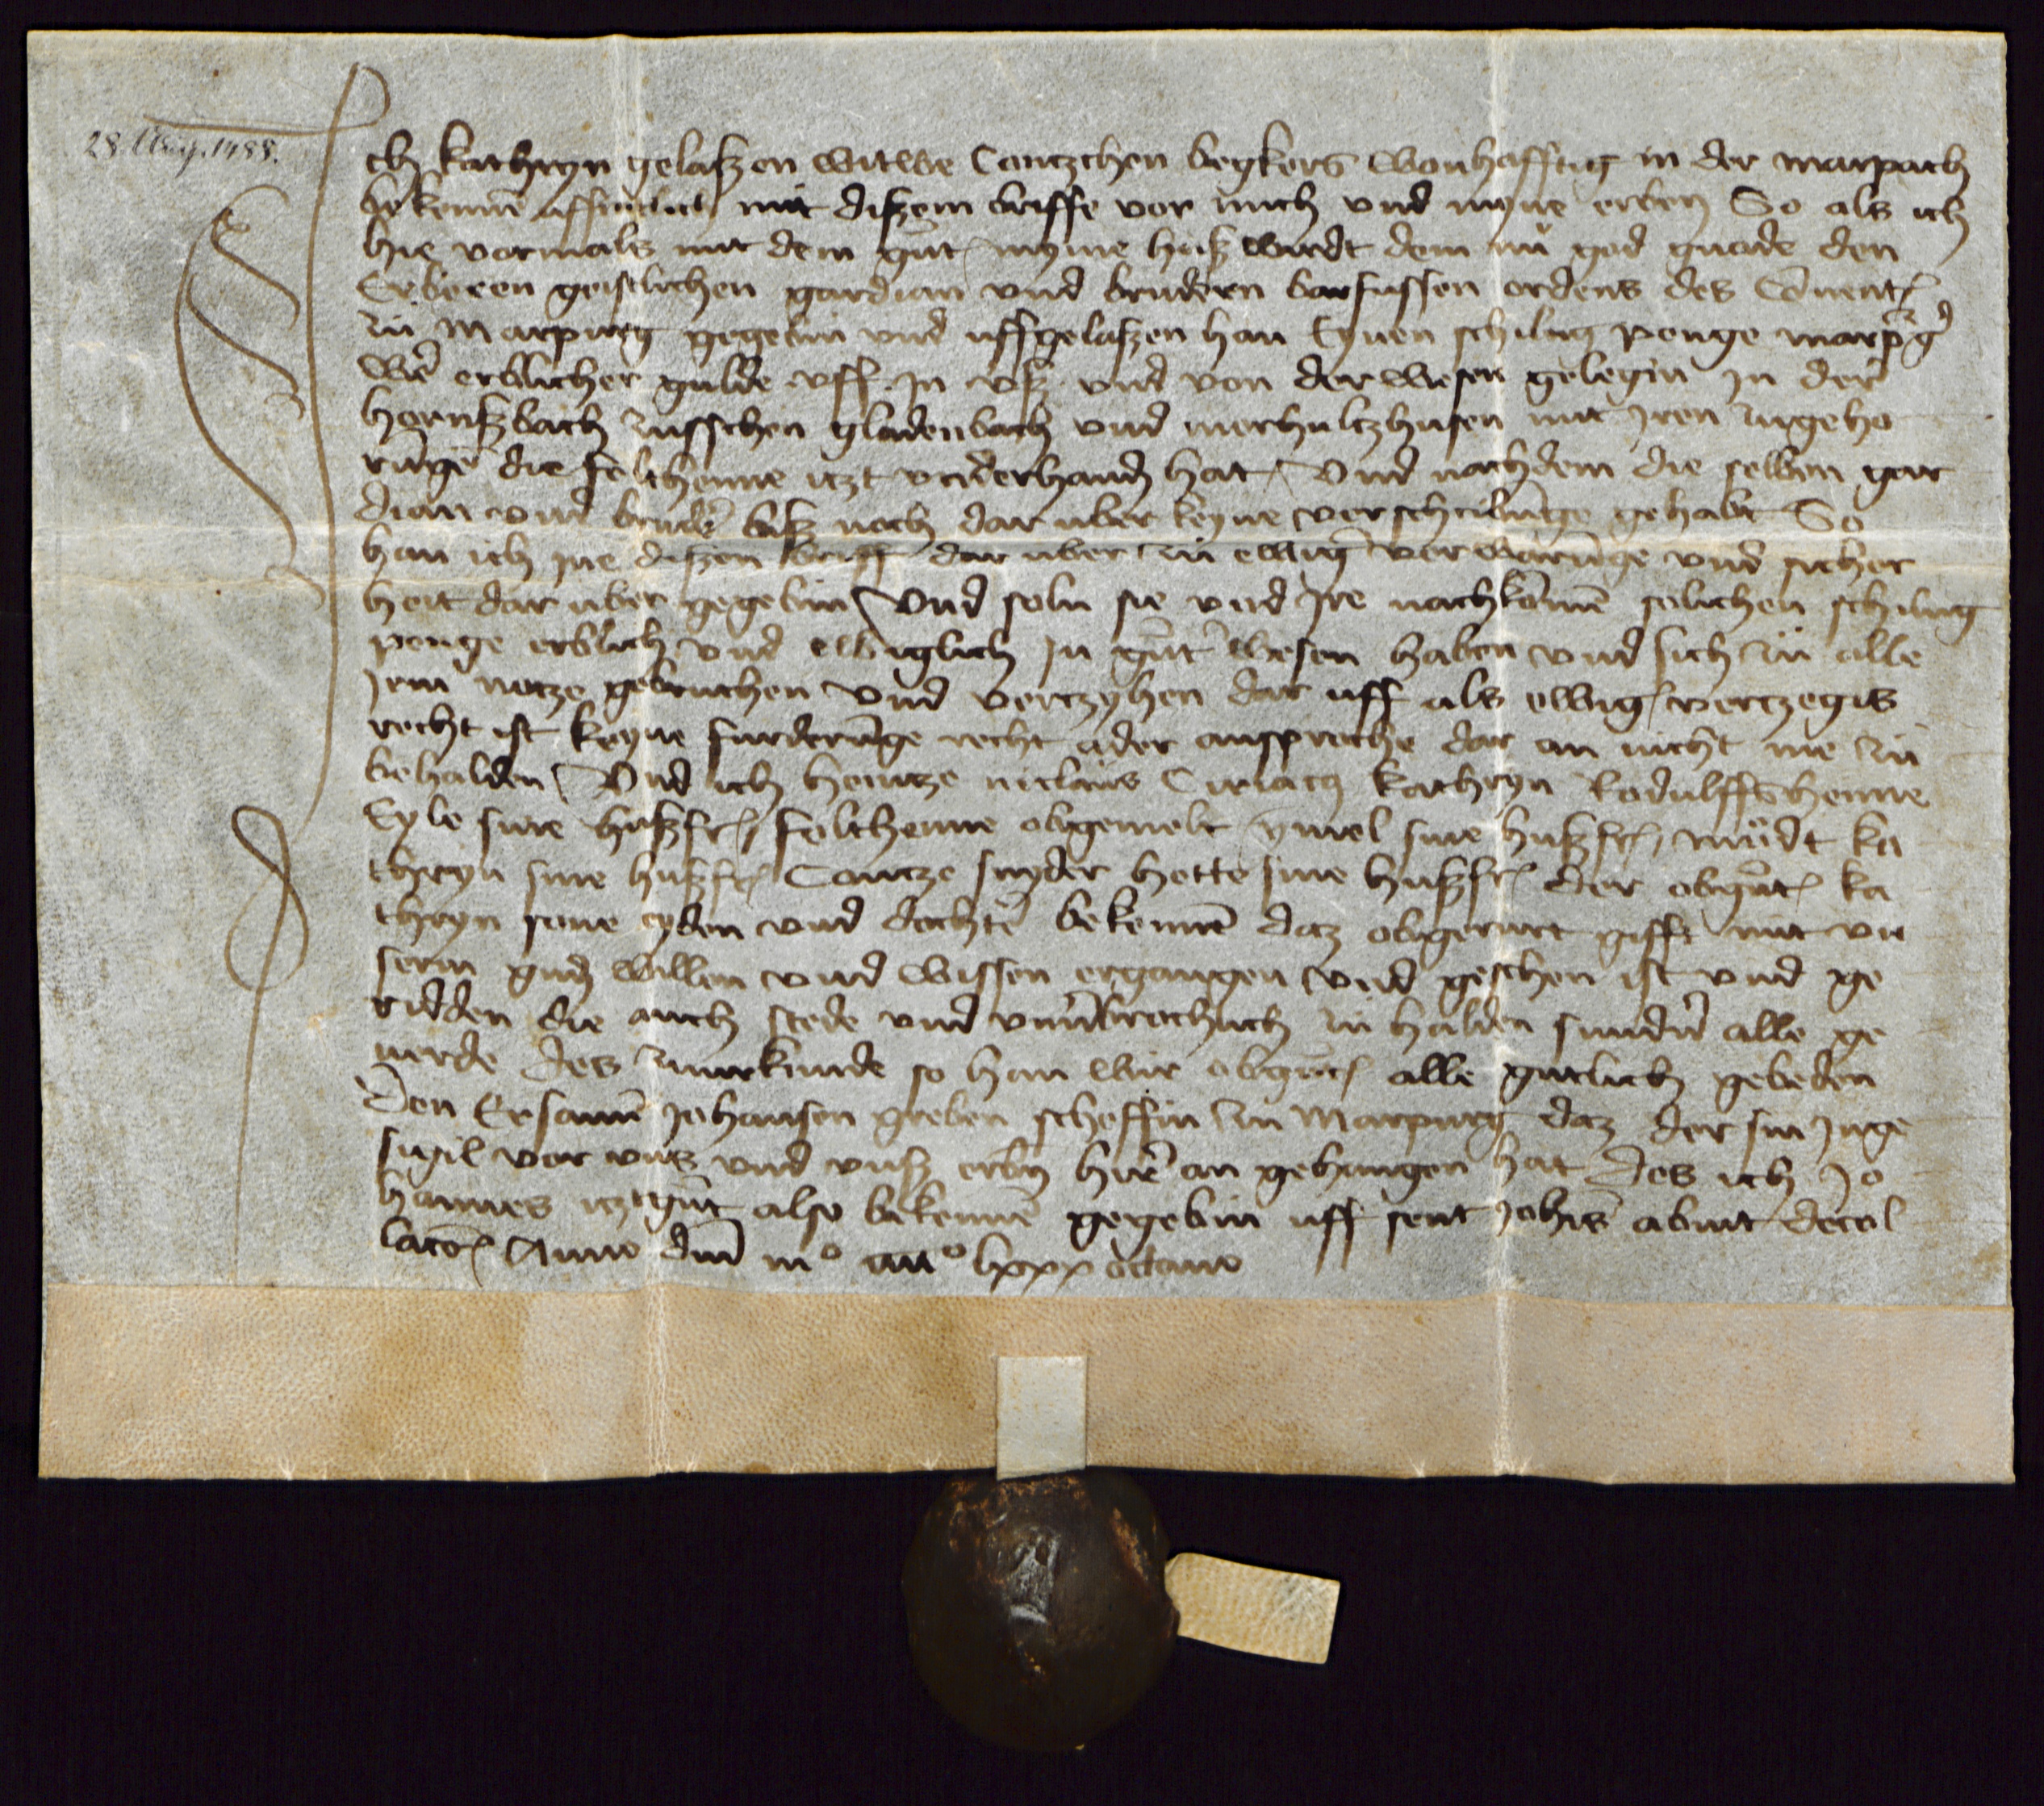 28. Aug. 1488.
Ich kathryn gelaszen witwe Contzchen beykers wonhafftig in der marpach
bekennē uffintlich mit diszem briffe vor mich und myne erben So als ich
hie vormals mit dem gūt myme husz wirdt dem nů god gnade den
Erberen geistlichen gardian und brudern barfussen ordens des Cōuents
zü Marpurg gegebin und uffgelaszen han Eynen schiling penge marp̄g
werū erblicher gulde uff In usz und von der wesen gelegin In der
hornszbach zusschen gladenbach und merhultzhusen mit Jren zugeho
rūnge die felthenne itzt underhand hat / Und nachdem die selben gar
dian und brudeř bisz noch dar uber keyne verschribūnge gehabt So
han ich jne diszen briff dar uber zü ewiger vorwarūnge und sicher
heit dar uber gegebin / Und soln sie und Jre nachkōmē solichen schiling
penge erblich und ewiglich In gūter wesen haben und sich zü alle
Jrm notze gebruchen und verczyhen dar uff als ewigs verczegis
recht ist keyne furderūnge recht ader ansproche dar an nicht me zü
behalden / Und ich heintze niclaus Ciriacg kathryn Rodulffs henne
Eyle sine huszfr / felthenne obgemelt ymel sine huszfr / ka
thryn sine huszfr Contze snyder hette sine huszfr der obgn̄t ka
thryn sone eyden und dochter bekennē daz obgerurt gifft mit un
serm gudē willen und wissen ergangen und geschen ist und ge
ridden die auch stede und unṽbrochlich zü halden sunder alle ge
uerde des zuurkunde so han wir obgnt alle gutlich gebeden
den Ersamē Johansen greben scheffin zü Marpurg daz der sin Inge
sigil vor uns und unsz erbn hir an gehangen hat des ich Jo
hannes itztgn̄t also bekennē gegebin uff sent Johīs abint decol
lacōs Anno dnī mº cccc º lxxx octauo